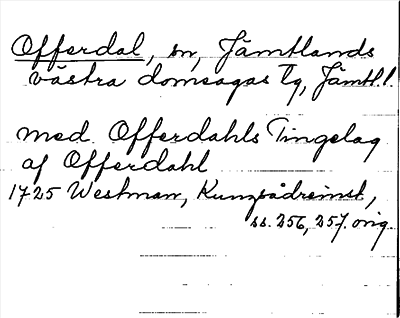 Offerdal, sn, Jämtlands
västra domsagas tg, Jämtl. l.
med Offerdahls Tingelag
af Offerdahl
1725 Westman, Kungsådreinst,
ss. 256, 257. orig